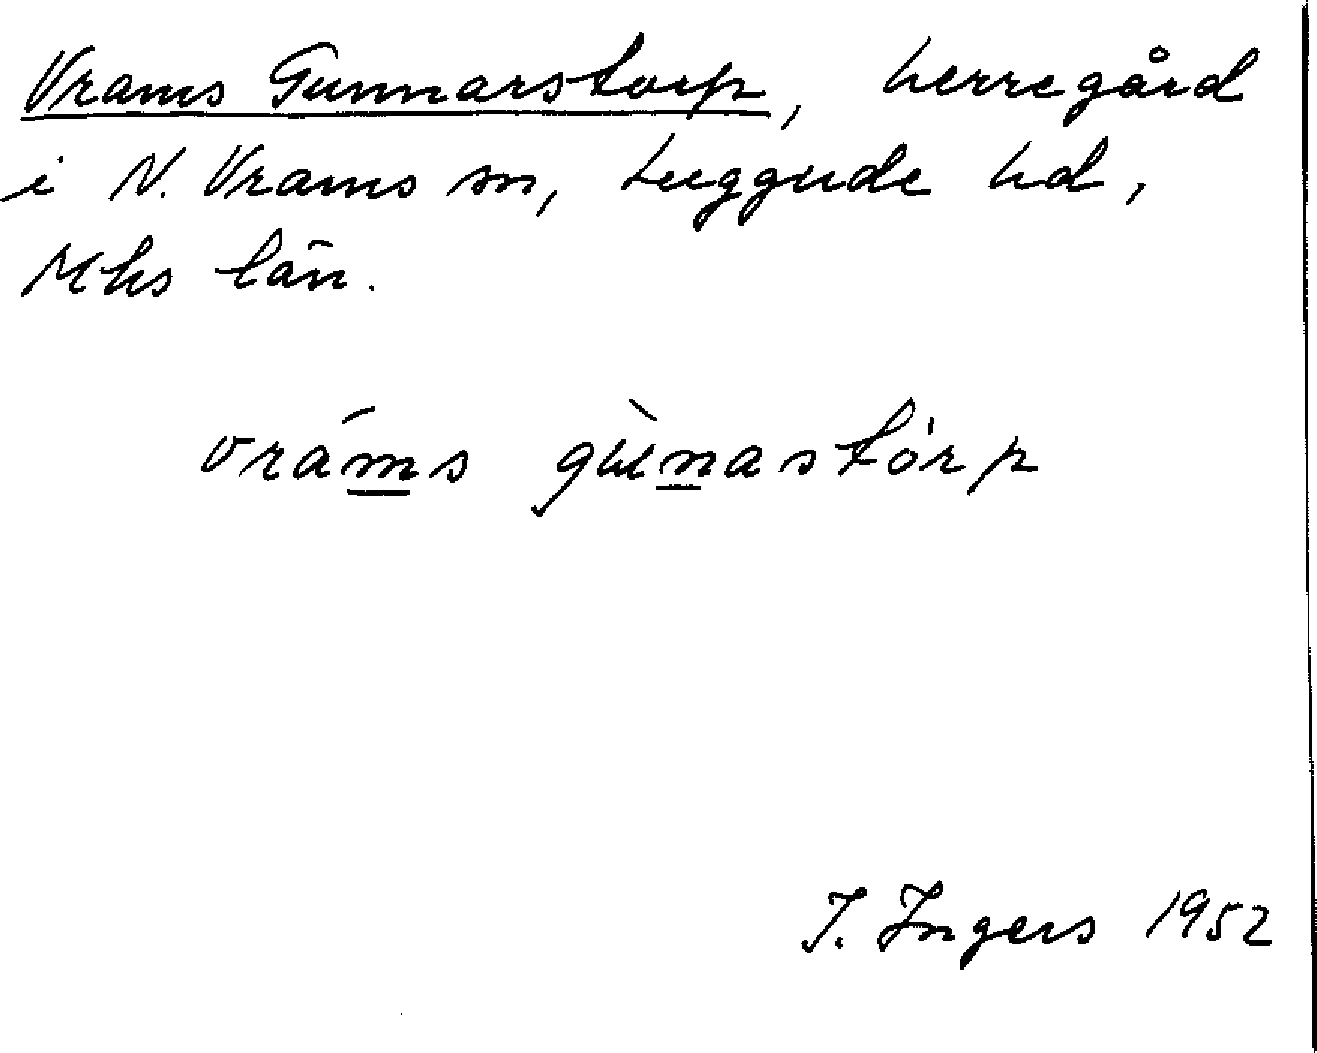 Vrams Gunnarstorp, herregård
i N. Vrams sn, Luggude hd,
Mhs län.
vrám̲s gùn̲astórp
I. Ingers 1952